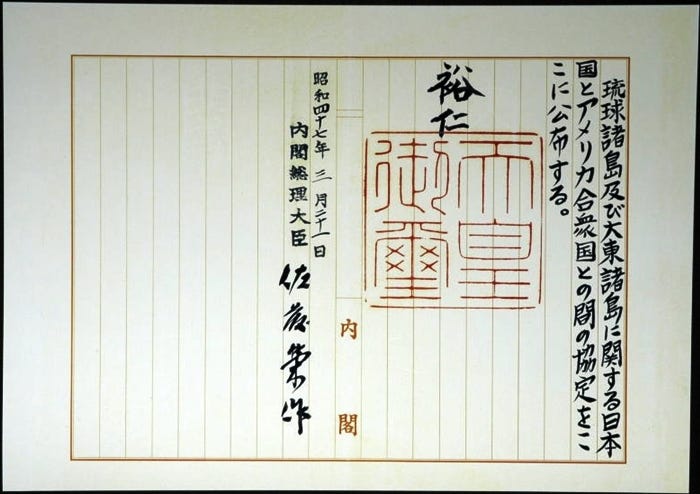 琉球諸島及び大東諸島に関する日本
国とアメリカ合衆国との間の協定をこ
こに公布する。
裕仁
天皇
御璽
内閣
昭和四十七年三月二十一日
内閣総理大臣 佐藤榮作